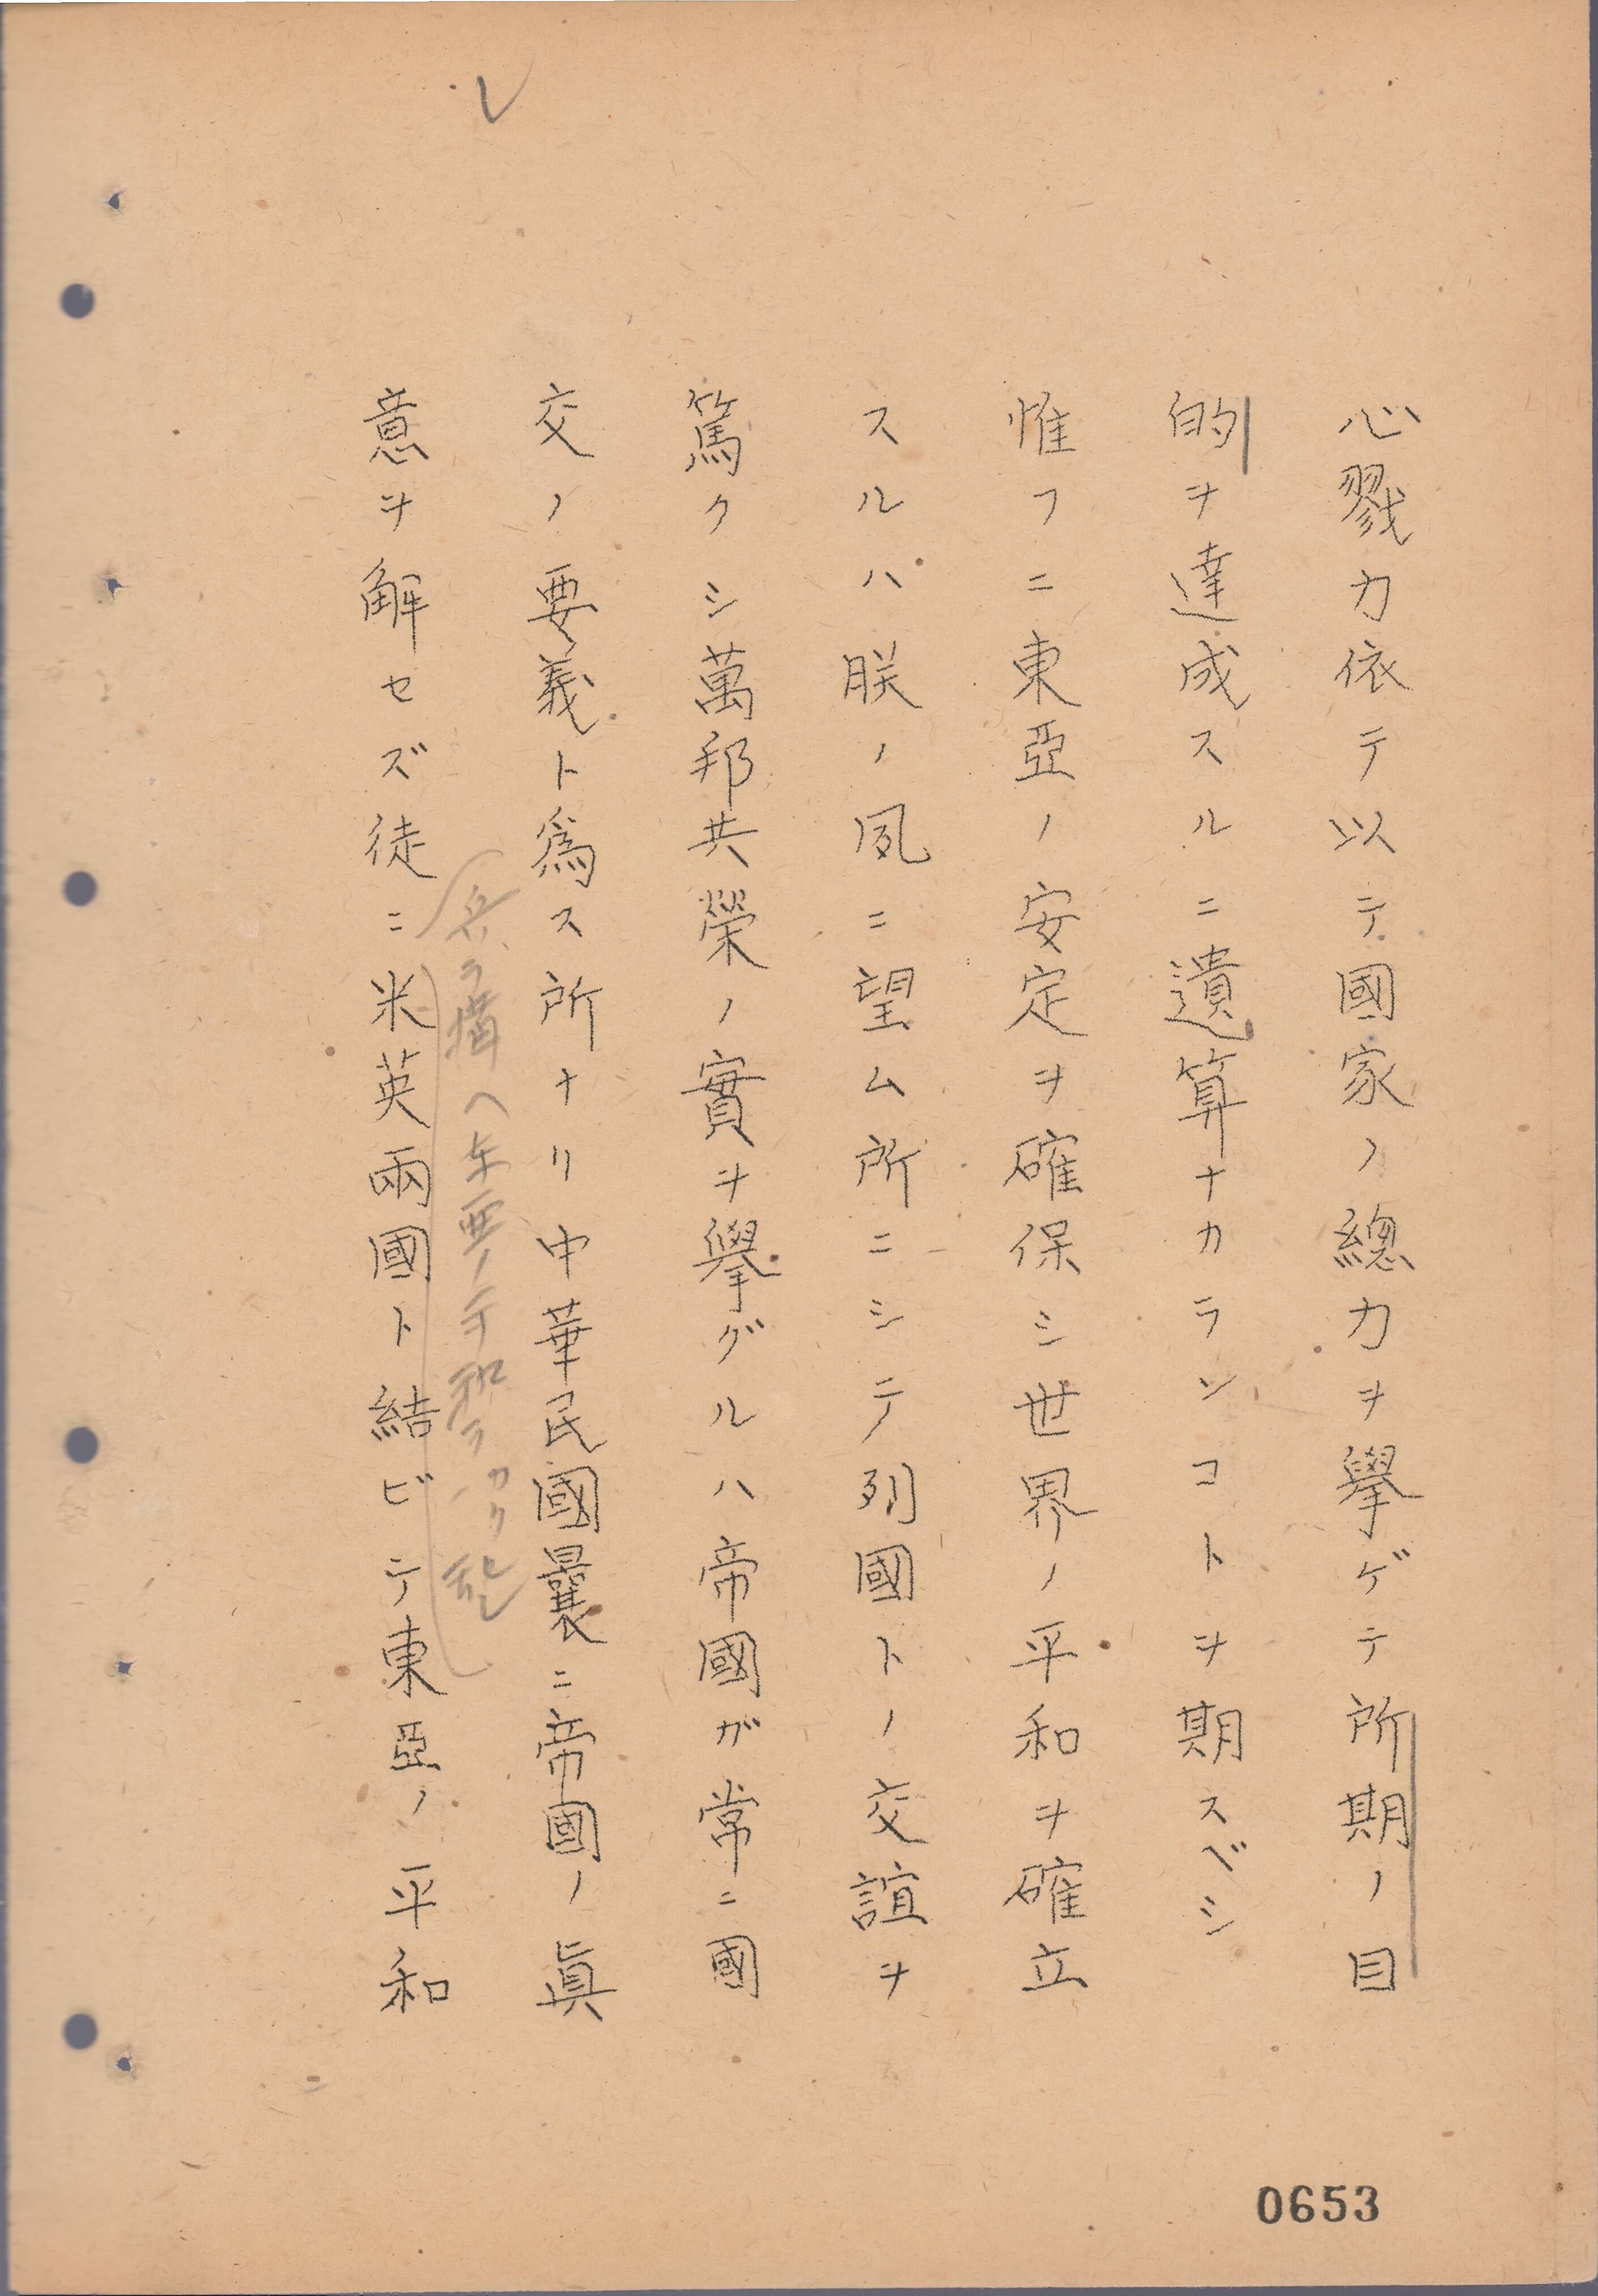 心戮力依テ以テ國家ノ總力ヲ擧ゲテ所期ノ目
的ヲ達成スルニ遺算ナカランコトヲ期スベシ
惟フニ東亞ノ安定ヲ確保シ世界ノ平和ヲ確立
スルハ朕ノ夙ニ望ム所ニシテ列國トノ交誼ヲ
篤クシ萬邦共榮ノ實ヲ擧グルハ帝國ガ常ニ國
交ノ要義ト爲ス所ナリ中華民國曩ニ帝國ノ眞
兵ヲ構ヘ東亞ノ平和ヲ
意ヲ解セズ徒ニ米英兩國ト結ビテ東亞ノ平和
0653